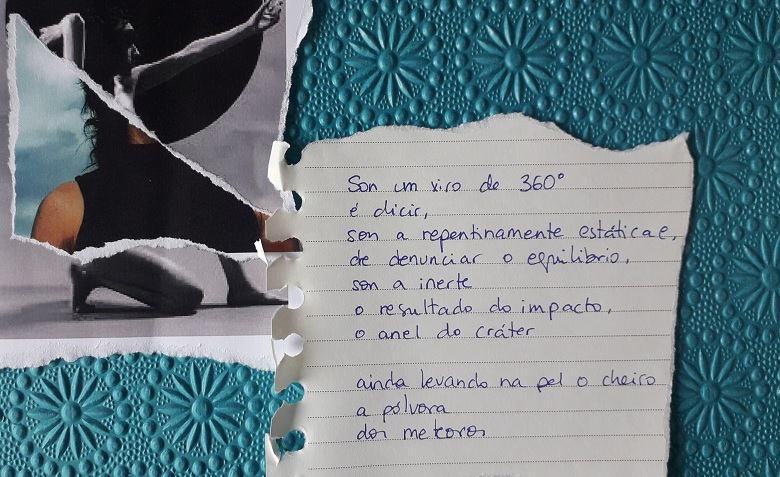 Son un xiro de 360°
é dicir,
son a repentinamente estática e,
de denunciar o equilibrio,
son a inerte
o resultado do impacto,
o anel do cráter
ainda levando na pel o cheiro
a pólvora
dos meteoros